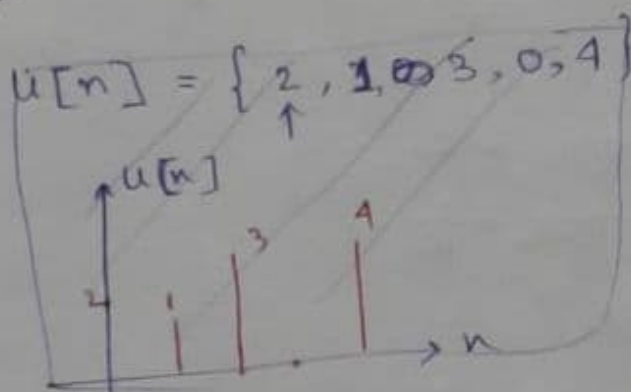 u[n] = { 2, 1, 3, 0, 4 }
↑
u[n]
2 1 3 4
n